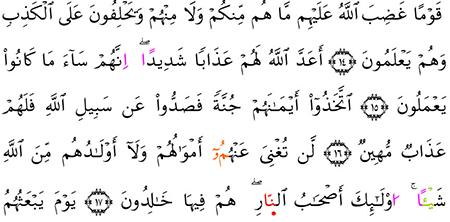 قَوْمًا غَضِبَ ٱللَّهُ عَلَيْهِم مَّا هُم مِّنكُمْ وَلَا مِنْهُمْ وَيَحْلِفُونَ عَلَى ٱلْكَذِبِ
وَهُمْ يَعْلَمُونَ ﴿١٤﴾ أَعَدَّ ٱللَّهُ لَهُمْ عَذَابًا شَدِيدًا ۖ إِنَّهُمْ سَآءَ مَا كَانُوا۟
يَعْمَلُونَ ﴿١٥﴾ ٱتَّخَذُوٓا۟ أَيْمَـٰنَهُمْ جُنَّةً فَصَدُّوا۟ عَن سَبِيلِ ٱللَّهِ فَلَهُمْ
عَذَابٌ مُّهِينٌ ﴿١٦﴾ لَّن تُغْنِىَ عَنْهُمُۥٓ أَمْوَٰلُهُمْ وَلَآ أَوْلَـٰدُهُم مِّنَ ٱللَّهِ
شَيْـًٔا ۚ ا۟وْلَـٰٓئِكَ أَصْحَـٰبُ ٱلنَّارِ ۖ هُمْ فِيهَا خَـٰلِدُونَ ﴿١٧﴾ يَوْمَ يَبْعَثُهُمُ